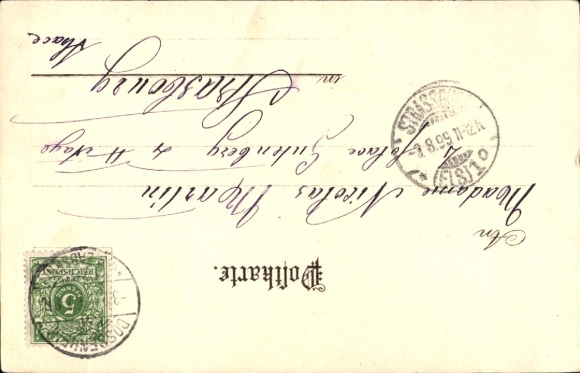 Postkarte.
An
Madame Nicolas Martin
4, place Gutenberg 4
in Strasbourg
Alsace
REICHSPOST
5
STRASSBURG
8.99 11-12
(ELS) 1